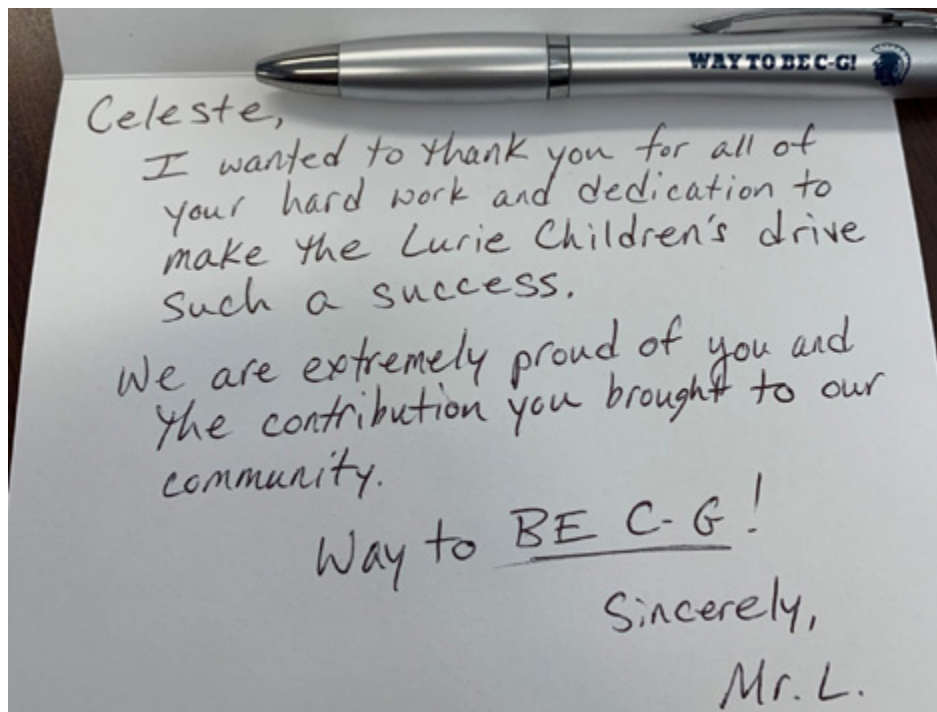 WAY TO BE C-G!
Celeste,
I wanted to thank you for all of
your hard work and dedication to
make the Lurie Children's drive
such a success.
We are extremely proud of you and
the contribution you brought to our
community.
Way to BE C-G!
Sincerely,
Mr. L.